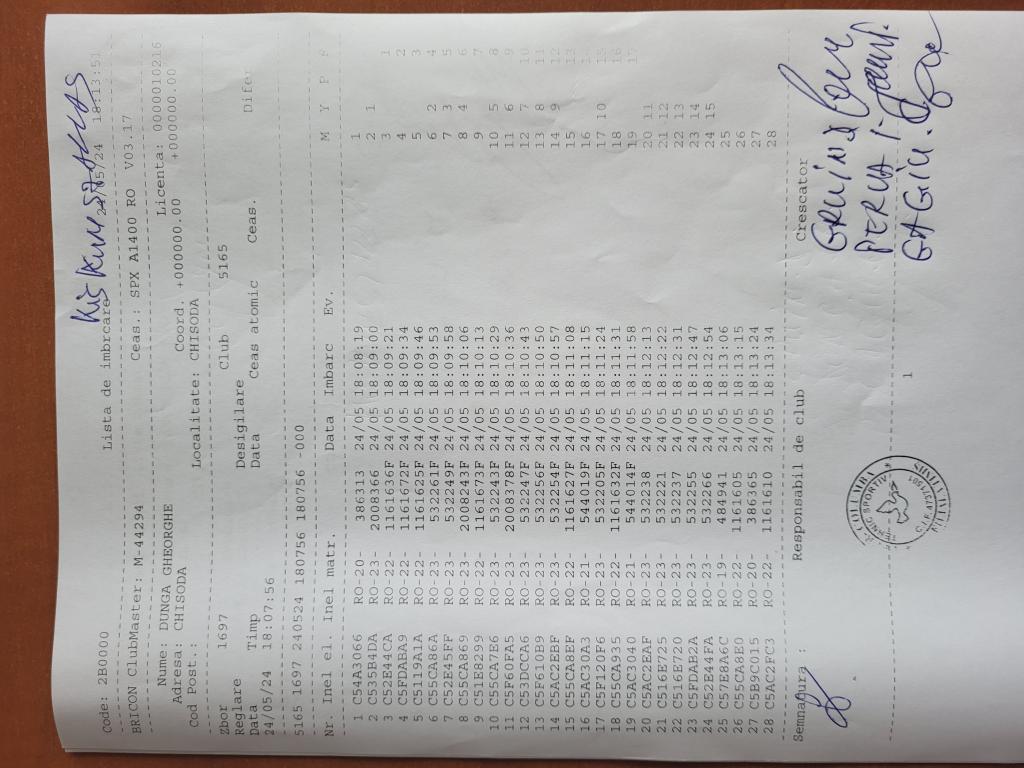 Code: 2B0000 Lista de imbrcare 24/05/24 18:13:51
BRICON ClubMaster: M-44294 Ceas.: SPX A1400 RO V03.17
Nume: DUNGA GHEORGHE Licenta: 0000010216
Adresa: CHISODA Coord. +000000.00 +0000000.00
Cod Post.: Localitate: CHISODA
Zbor 1697 Club 5165
Reglare Desigilare
Data Timp Data Ceas atomic Ceas. Difer
24/05/24 18:07:56
5165 1697 240524 180756 180756 -000
Nr. Inel el. Inel matr. Data Imbarc Ev. M Y P F
1 C54A3066 RO-20- 386313 24/05 18:08:19 1
2 C535B4DA RO-23- 2008366 24/05 18:09:00 2 1
3 C52E44CA RO-22- 1161636F 24/05 18:09:21 3 1
4 C5FDABA9 RO-22- 1161672F 24/05 18:09:34 4 2
5 C5119A1A RO-22- 1161625F 24/05 18:09:46 5 3
6 C55CA86A RO-23- 532261F 24/05 18:09:53 6 2 4
7 C52E45FF RO-23- 532249F 24/05 18:09:58 7 3 5
8 C55CA869 RO-23- 2008243F 24/05 18:10:06 8 4 6
9 C51E8299 RO-22- 1161673F 24/05 18:10:13 9 7
10 C55CA7E6 RO-23- 532243F 24/05 18:10:29 10 5 8
11 C5F6BFA5 RO-23- 2008378F 24/05 18:10:36 11 6 9
12 C53DCCA6 RO-23- 532247F 24/05 18:10:43 12 7 10
13 C5F610B9 RO-23- 532256F 24/05 18:10:50 13 8 11
14 C5AC2EBF RO-23- 532254F 24/05 18:10:57 14 9 12
15 C55CA8EF RO-22- 1161627F 24/05 18:11:08 15 13
16 C5AC30A3 RO-21- 544019F 24/05 18:11:17 16 14
17 C5F120F6 RO-23- 532205F 24/05 18:11:24 17 10 15
18 C55CA935 RO-22- 1161632F 24/05 18:11:31 18 16
19 C5AC3040 RO-21- 544014F 24/05 18:11:58 19 17
20 C5AC2EAF RO-23- 532238 24/05 18:12:13 20 11
21 C516B725 RO-23- 532221 24/05 18:12:22 21 12
22 C516B720 RO-23- 532237 24/05 18:12:31 22 13
23 C5FDAB2A RO-23- 532255 24/05 18:12:47 23 14
24 C52E44FA RO-23- 532266 24/05 18:12:54 24 15
25 C57E8A6C RO-19- 484941 24/05 18:13:06 25
26 C55CA8E0 RO-22- 1161605 24/05 18:13:15 26
27 C5B9C015 RO-20- 386365 24/05 18:13:24 27
28 C5AC2FC3 RO-22- 1161610 24/05 18:13:34 28
Semnatura : Responsabil de club Crescator
COLUMBA
1